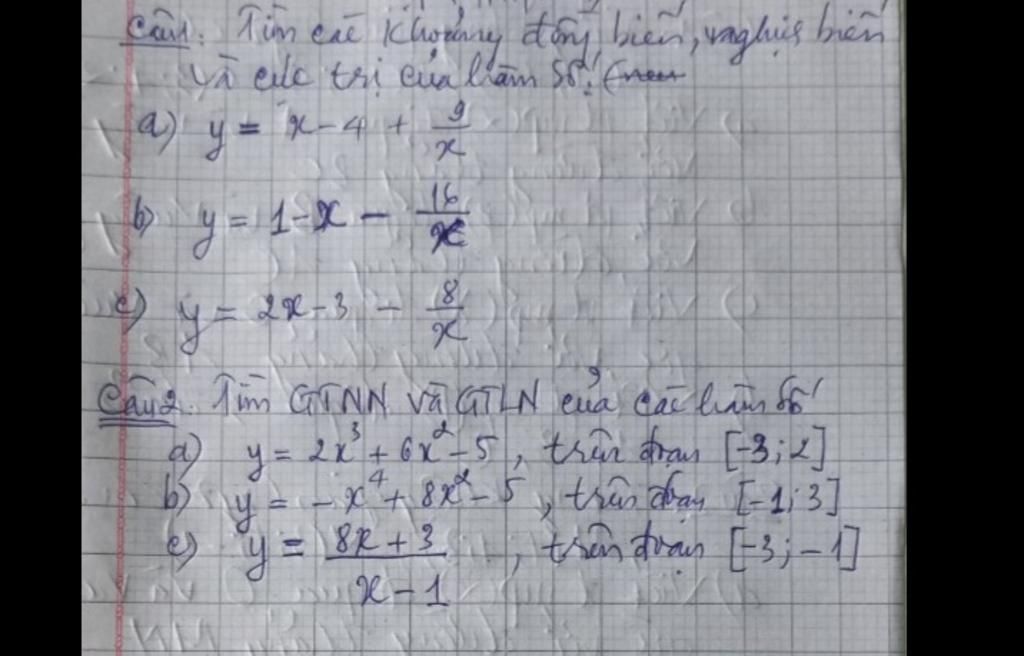 Câu1. Tìm các khoảng đồng biến, nghịch biến
và cực trị của hàm số.
a) y = x - 4 + 9/x
b) y = 1 - x - 16/x
c) y = 2x - 3 - 8/x
Câu2. Tìm GTNN và GTLN của các hàm số
a) y = 2x³ + 6x² - 5, trên đoạn [-3; 2]
b) y = - x⁴ + 8x² - 5, trên đoạn [-1; 3]
c) y = (8x + 3)/(x - 1), trên đoạn [-3; -1]